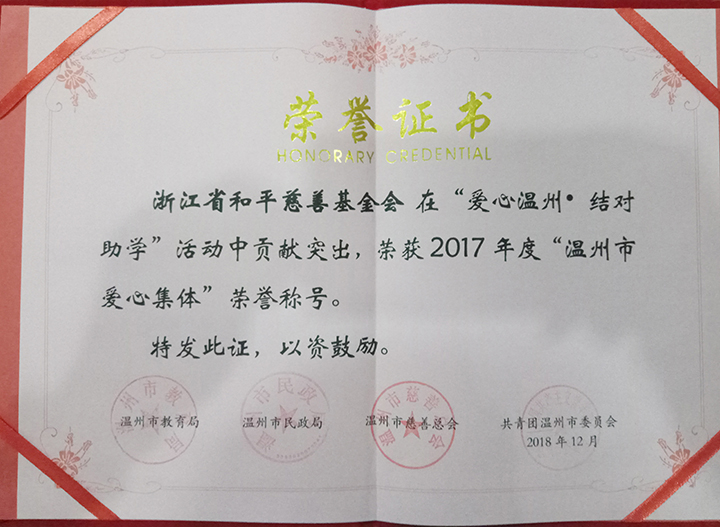 荣誉证书
HONORARY CREDENTIAL
浙江省和平慈善基金会在“爱心温州•结对
助学”活动中贡献突出，荣获2017年度“温州市
爱心集体”荣誉称号。
特发此证，以资鼓励。
温州市教育局 温州市民政局 温州市慈善总会 共青团温州市委员会
2018年12月